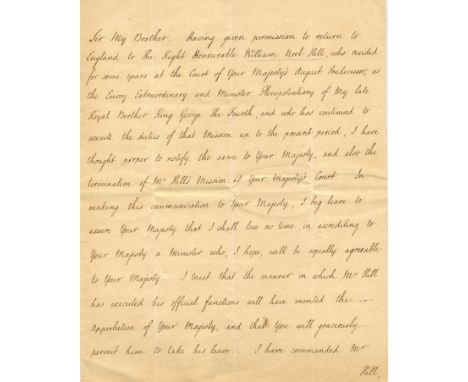 Sir My Brother. Having given permission to return to
England to The Right Honourable William Noel Hill, who resided
for some years at the Court of Your Majesty's August Predecessor, as
the Envoy Extraordinary and Minister Plenipotentiary of My late
Royal Brother King George The Fourth, and who has continued to
execute the duties of that Mission up to the present period, I have
thought proper to notify the same to Your Majesty, and also the
termination of Mr Hill's Mission at Your Majesty's Court. In
making this communication to Your Majesty, I beg leave to
assure Your Majesty that I shall lose no time in accrediting to
Your Majesty a Minister who, I hope, will be equally agreeable
to Your Majesty. I trust that the manner in which Mr Hill
has executed his official functions will have merited the —
Approbation of Your Majesty, and that You will graciously
permit him to take his leave. I have commanded Mr
Hill,